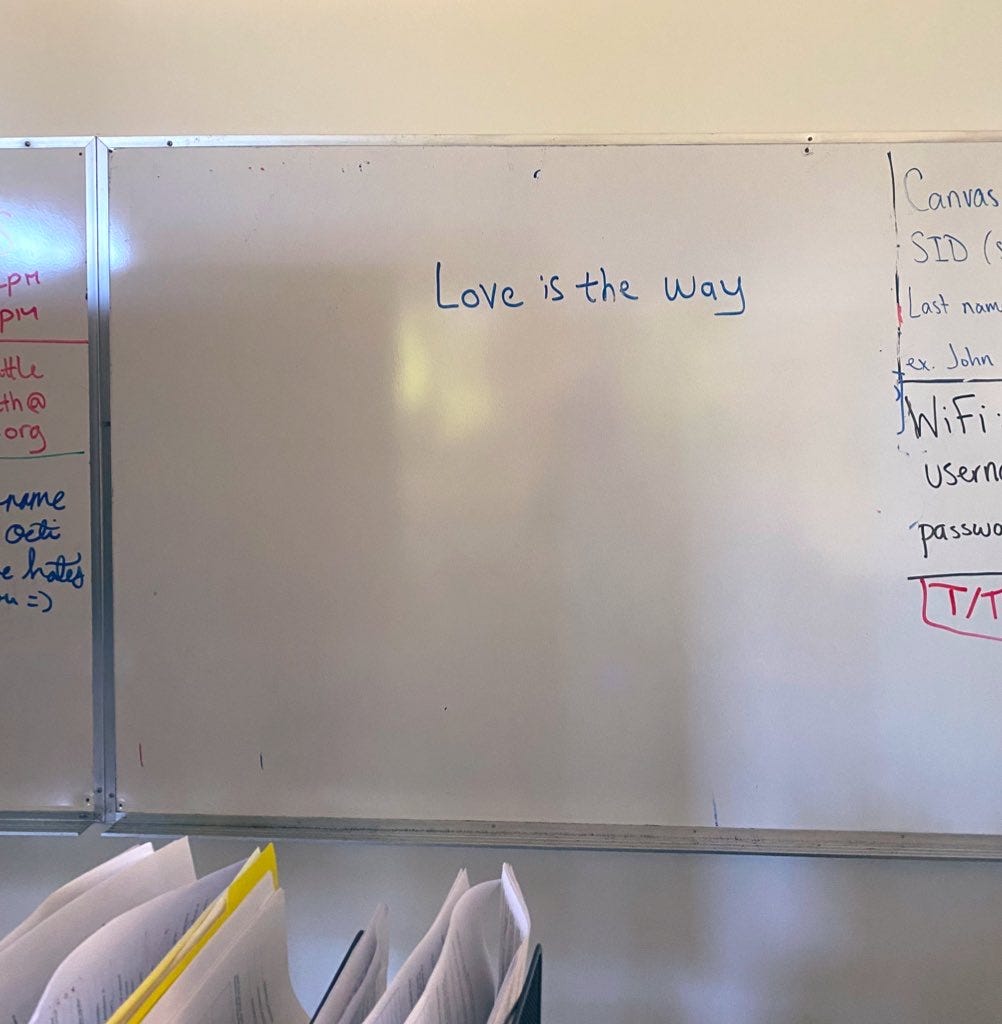 pm
pm
@
org
name
Octi
hates
=)
Love is the way
Canvas
SID (
Last nam
ex. John
WiFi:
userna
passwo
T/T